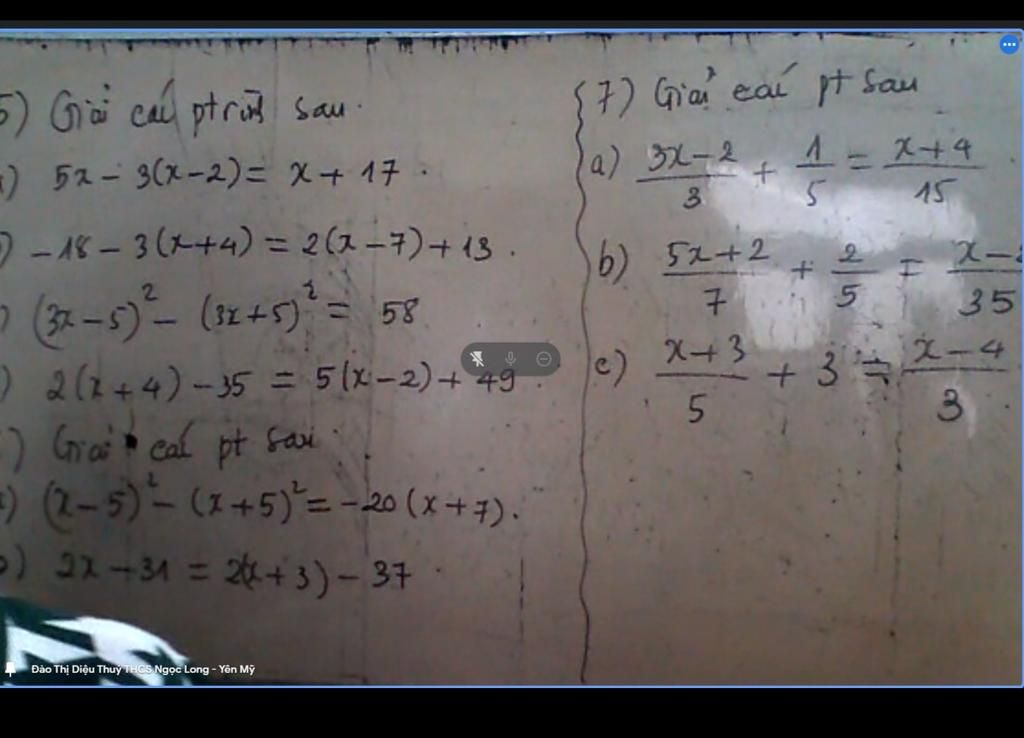 5) Giải các ptrình sau.
a) 5x - 3(x-2) = x + 17.
b) -18 - 3(x+4) = 2(x-7) + 13.
) (3x-5)² - (3x+5)² = 58
) 2(x+4) - 35 = 5(x-2) + 49.
) Giải các pt sau
a) (x-5)² - (x+5)² = -20(x+7).
b) 2x - 31 = 2(x+3) - 37
7) Giải các pt sau
a) (3x-2)/3 + 1/5 = (x+4)/15
b) (5x+2)/7 + 2/5 = (x-)/35
c) (x+3)/5 + 3 = (x-4)/3
Đào Thị Diệu Thuỷ THCS Ngọc Long - Yên Mỹ